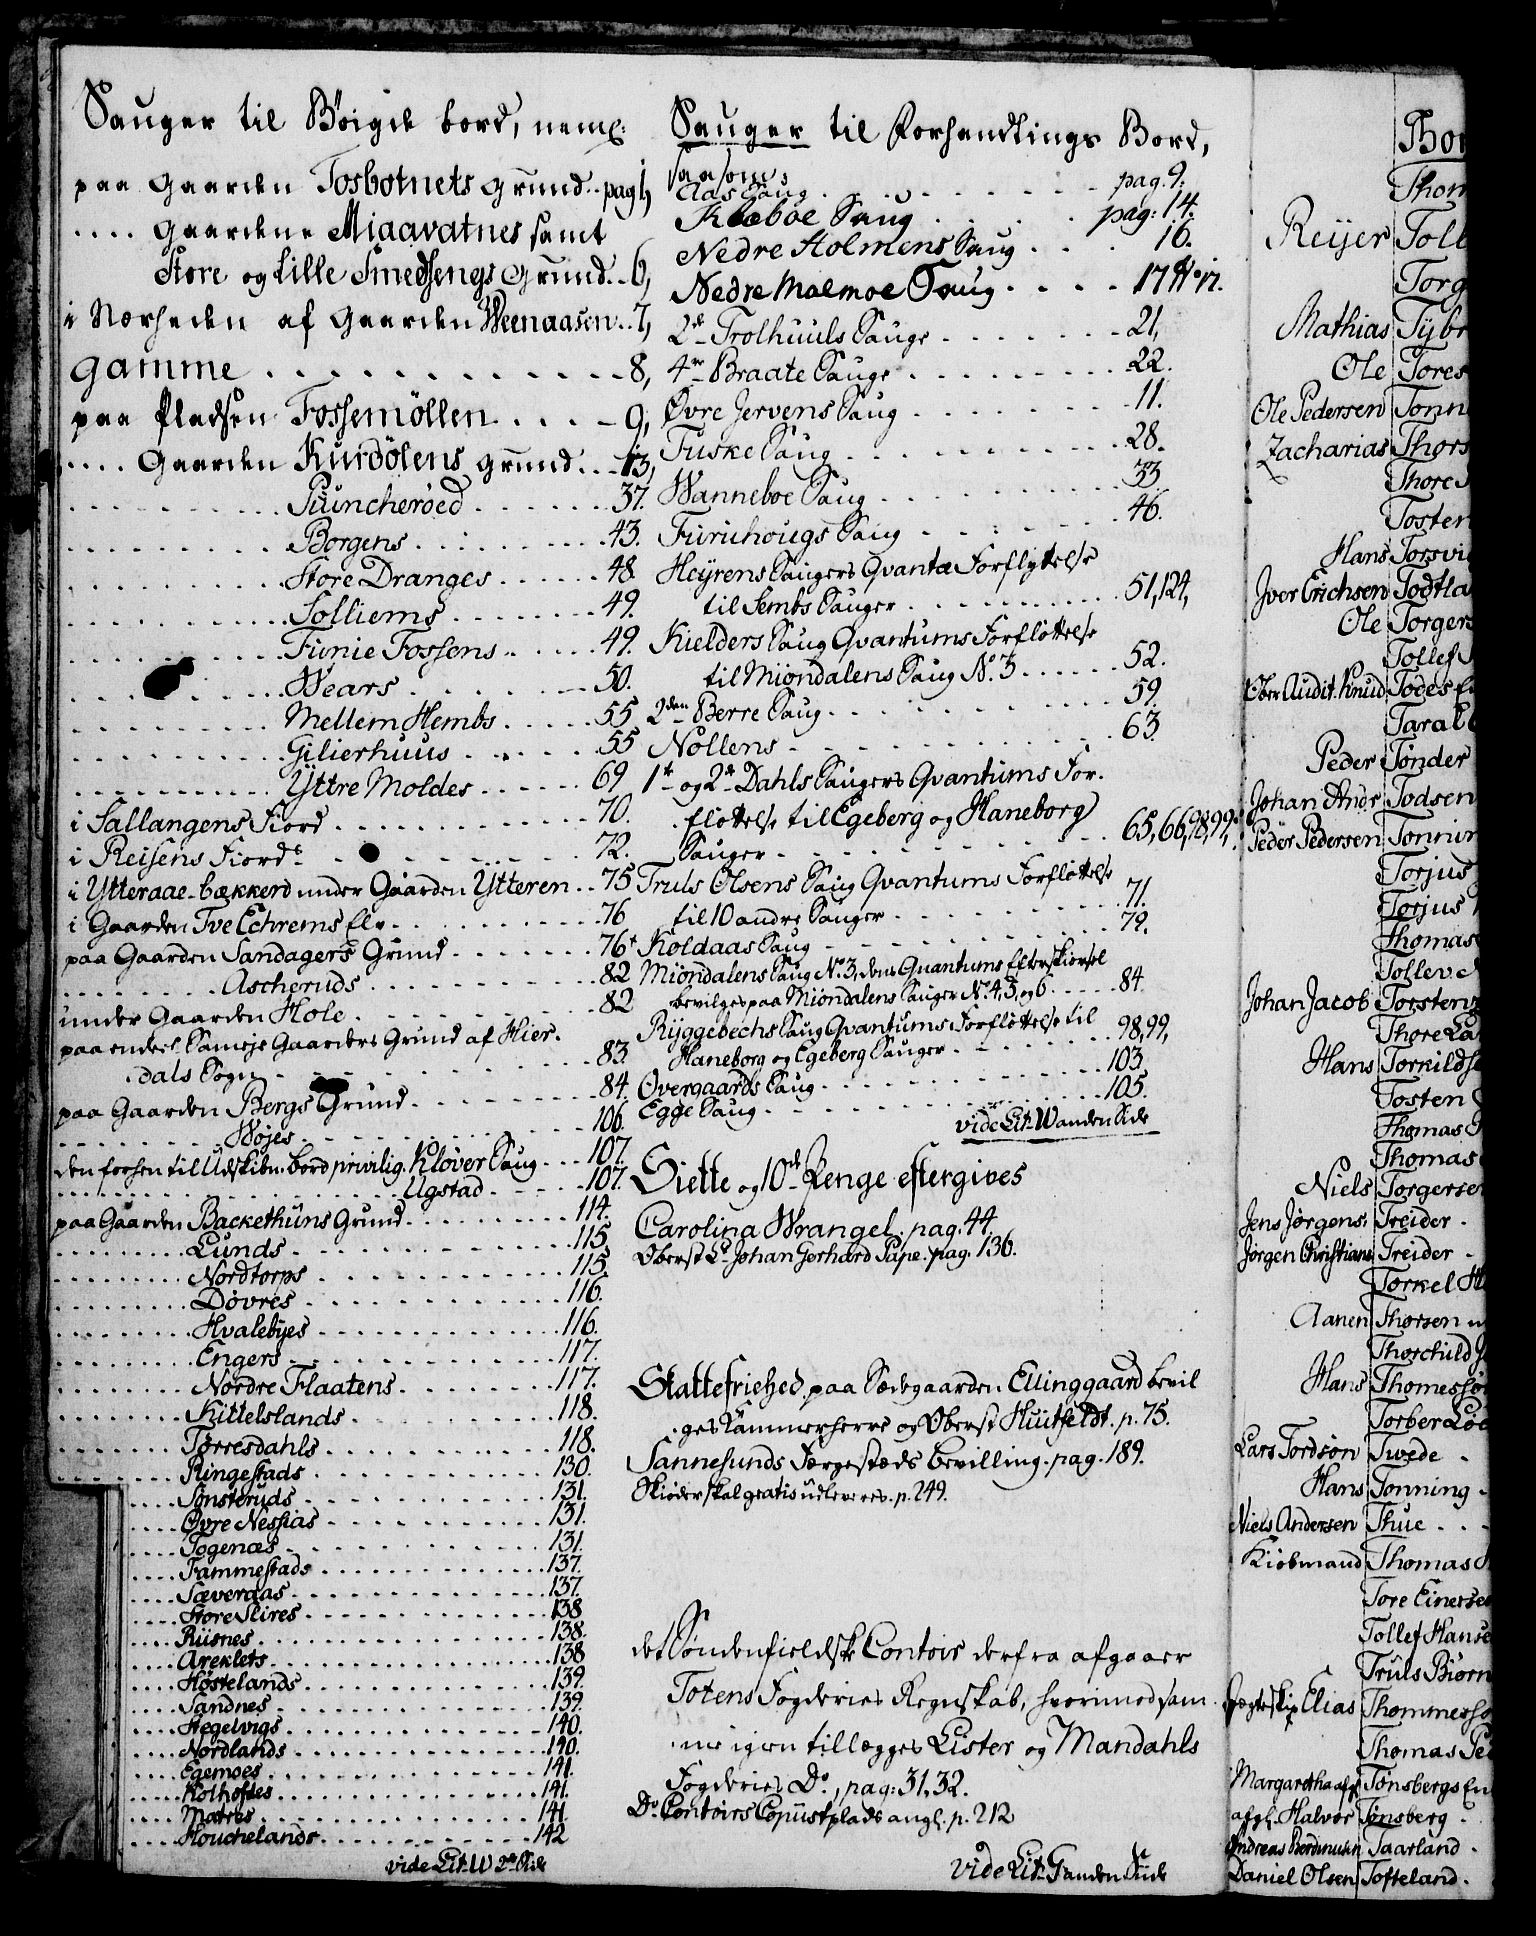 Sauger til Bøigde bord, neml:
paa Gaarden Tosbotnets Grund .. pag 1,
.... Gaardene Miaavatnes samt
Store og Lille Smedsengs Grund .. 6,
i Nærheden af Gaarden Weenaasen .. 7,
Gamme . . . . 8,
paa Pladsen Fossemöllen .... 9,
.... Gaarden Kurdölens Grund ... 13,
Puncheröed ...... 37.
Borgens ...... 43.
Store Dranges ...... 48
Solliems ...... 49.
Finie Fossens ...... 49.
Wears ...... 50.
Mellem Hembs ..... 55
Gilierhuus ..... 55
Yttre Moldes ...... 69
i Sallangens Fiord ...... 70.
i Reisens Fiord ...... 72.
i Ytteraae-bækkerd under Gaarden Ytteren .. 75
i Gaarden Tve Echrems Elv ...... 76
paa Gaarden Sandagers Grund ...... 76
Ascheruds ...... 82
under Gaarden Hole ...... 82
paa endeel Sameje Gaarders Grund af Hier-
dals Sogn ...... 83.
paa Gaarden Bergs Grund ...... 84.
Wøjes ...... 106.
den forhen til Udskibn: bord privilig. Kløver Saug ... 107.
Ugstad ..... 107.
paa Gaarden Backethuns Grund ...... 114.
Lunds ...... 115.
Nordtorps ...... 115.
Døvres ...... 116.
Hvalebyes ...... 116.
Engers ...... 117.
Nordre Flaatens ...... 117.
Kittelslands ...... 118.
Torresdahls ...... 118.
Ringestads ...... 130.
Sønsteruds ...... 131.
Øvre Nessias ...... 131.
Togenæs ...... 131.
Fammestads ...... 137.
Sæveraas ...... 137.
Store Slires ...... 138
Riisnes ...... 138.
Areklets ...... 138
Høstelands ...... 139.
Sandnes ...... 139.
Stegelvigs ...... 140.
Nordlands ...... 140.
Egemoes ...... 141.
Kolhofdes ...... 141.
Matres ...... 141.
Houchelands ...... 142
vide Lit. W 2de Side
Sauger til Forhandlings Bord,
saasom:
Aas Saug ...... pag. 9.
Klæboe Saug ..... pag: 14.
Nedre Holmens Saug ... 16.
Nedre Malmoe Saug .... 17
2de Trolhuuls Sauge ...... 21,
4re Braate Sauge ...... 22.
Øvre Jervens Saug ...... 11.
Fuske Saug ...... 28.
Wanneboe Saug ...... 33
Furuhougs Saug ...... 46.
Heyrens Saugers Qvantæ Forflyttelse
til Sembs Sauger ...... 51, 124,
Kielders Saug Qvantums Forfløttelse
til Miöndalens Saug No. 3 ..... 52.
2den Berre Saug ...... 59.
Nøllens ...... 63.
1te og 2de Dahls Saugers Qvantums For-
fløttelse til Egeberg og Haneborg
Sauger ...... 65, 66, 98, 99,
Truls Olsens Saug Qvantums Forfløttelse
til 10 andre Sauger ...... 71.
Koldaas Saug ...... 79.
Miöndalens Saug No. 3, dens Quantums Efterskiørsel
bevilges paa Miöndalens Sauger No. 4, 5, og 6 ..... 84.
Ryggebechs Saug Qvantums Forfløttelse til
Haneborg og Egeberg Sauger ...... 98, 99,
Overgaards Saug ...... 103.
Egge Saug ...... 105.
vide Lit. W anden Side
Siette og 10de Penge eftergives
Carolina Wrangel, pag. 44.
Oberst Lt. Johan Gerhard Pape. pag. 136.
Skattefriehed paa Sædegaarden Ellinggaard bevil
ges Kammerherre og Oberst Huitfeldt. p. 75.
Sannesunds Færgestæds Bevilling. pag. 189.
Skiøder skal gratis udleveres. p. 249.
det Söndenfieldske Contoir derfra afgaaer
Totens Fogderies Regnskab, hvorimod sam-
me igien tillægges Lister og Mandahls
Fogderies Do, pag: 31, 32.
Do. Contoirs Copiistplads angl. p. 212
vide Lit. G anden Side
Thom
Reijer Toll
Torg
Mathias Tybr
Ole Tores
Ole Pedersen Tonn
Zacharias Thors
Thore
Tosten
Hans Torsvi
Jver Erichsen Todtla
Ole Torgers
Tollef
Ober Audit. Knud Todes
Taral
Peder Tønder
Johan Andr Todsen
Peder Pedersen Tonniin
Torjus
Torjus
Thomas
Tollev.
Johan Jacob Torsten
Thore La
Hans Torkilds
Tosten
Thomas
Thomas
Niels Torgersen
Jens Jørgens. Treider .
Jørgen Christians Treider .
Torkel H
Aanen Thorsen
Thorchild
Hans Thomessø
Torber Loe
Lars Tordsøn Twede .
Hans Tonning .
Niels Andersen Thue . . .
Kiöbmand Thomas
Tore Einerse
Tollef Hans
Truls Biörn
Elias Thommess
Thomas Pe
Margaretha afg Tønsbergs En
afgl. Halvor Tønsberg .
Taarland .
Daniel Olsen Tofteland .